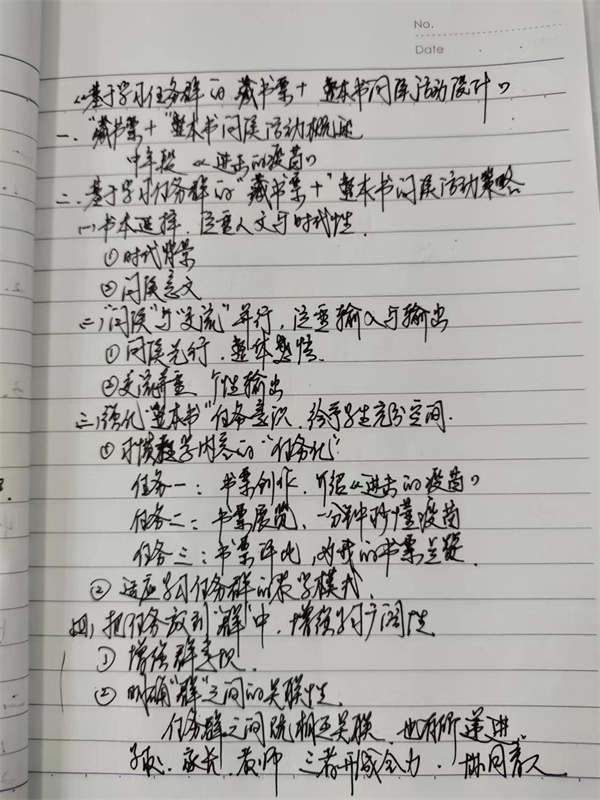 No.
Date
《基于学习任务群的藏书票+整本书阅读活动设计》
一、"藏书票+"整本书阅读活动概述
中年段《进击的疫苗》
二、基于学习任务群的"藏书票+"整本书阅读活动策略
(一)书本选择,注重人文与时代性.
①时代背景
②阅读意义
(二)"阅读"与"交流"并行,注重输入与输出
①阅读先行,整体感悟.
②交流并重 个性输出
(三)强化"整本书"任务意识,给予学生充分空间.
①习惯教学内容的"任务化":
任务一:书票创作,介绍《进击的疫苗》
任务二:书票展览,一分钟秒懂疫苗
任务三:书票评比,为我的书票点赞.
②适应学习任务群的教学模式.
(四)把任务放到"群"中,增强学习广阔性.
①增强群意识.
②明确"群"之间的关联性.
任务群之间既相互关联,也有所递进.
家长、教师 三者形成合力,协同育人